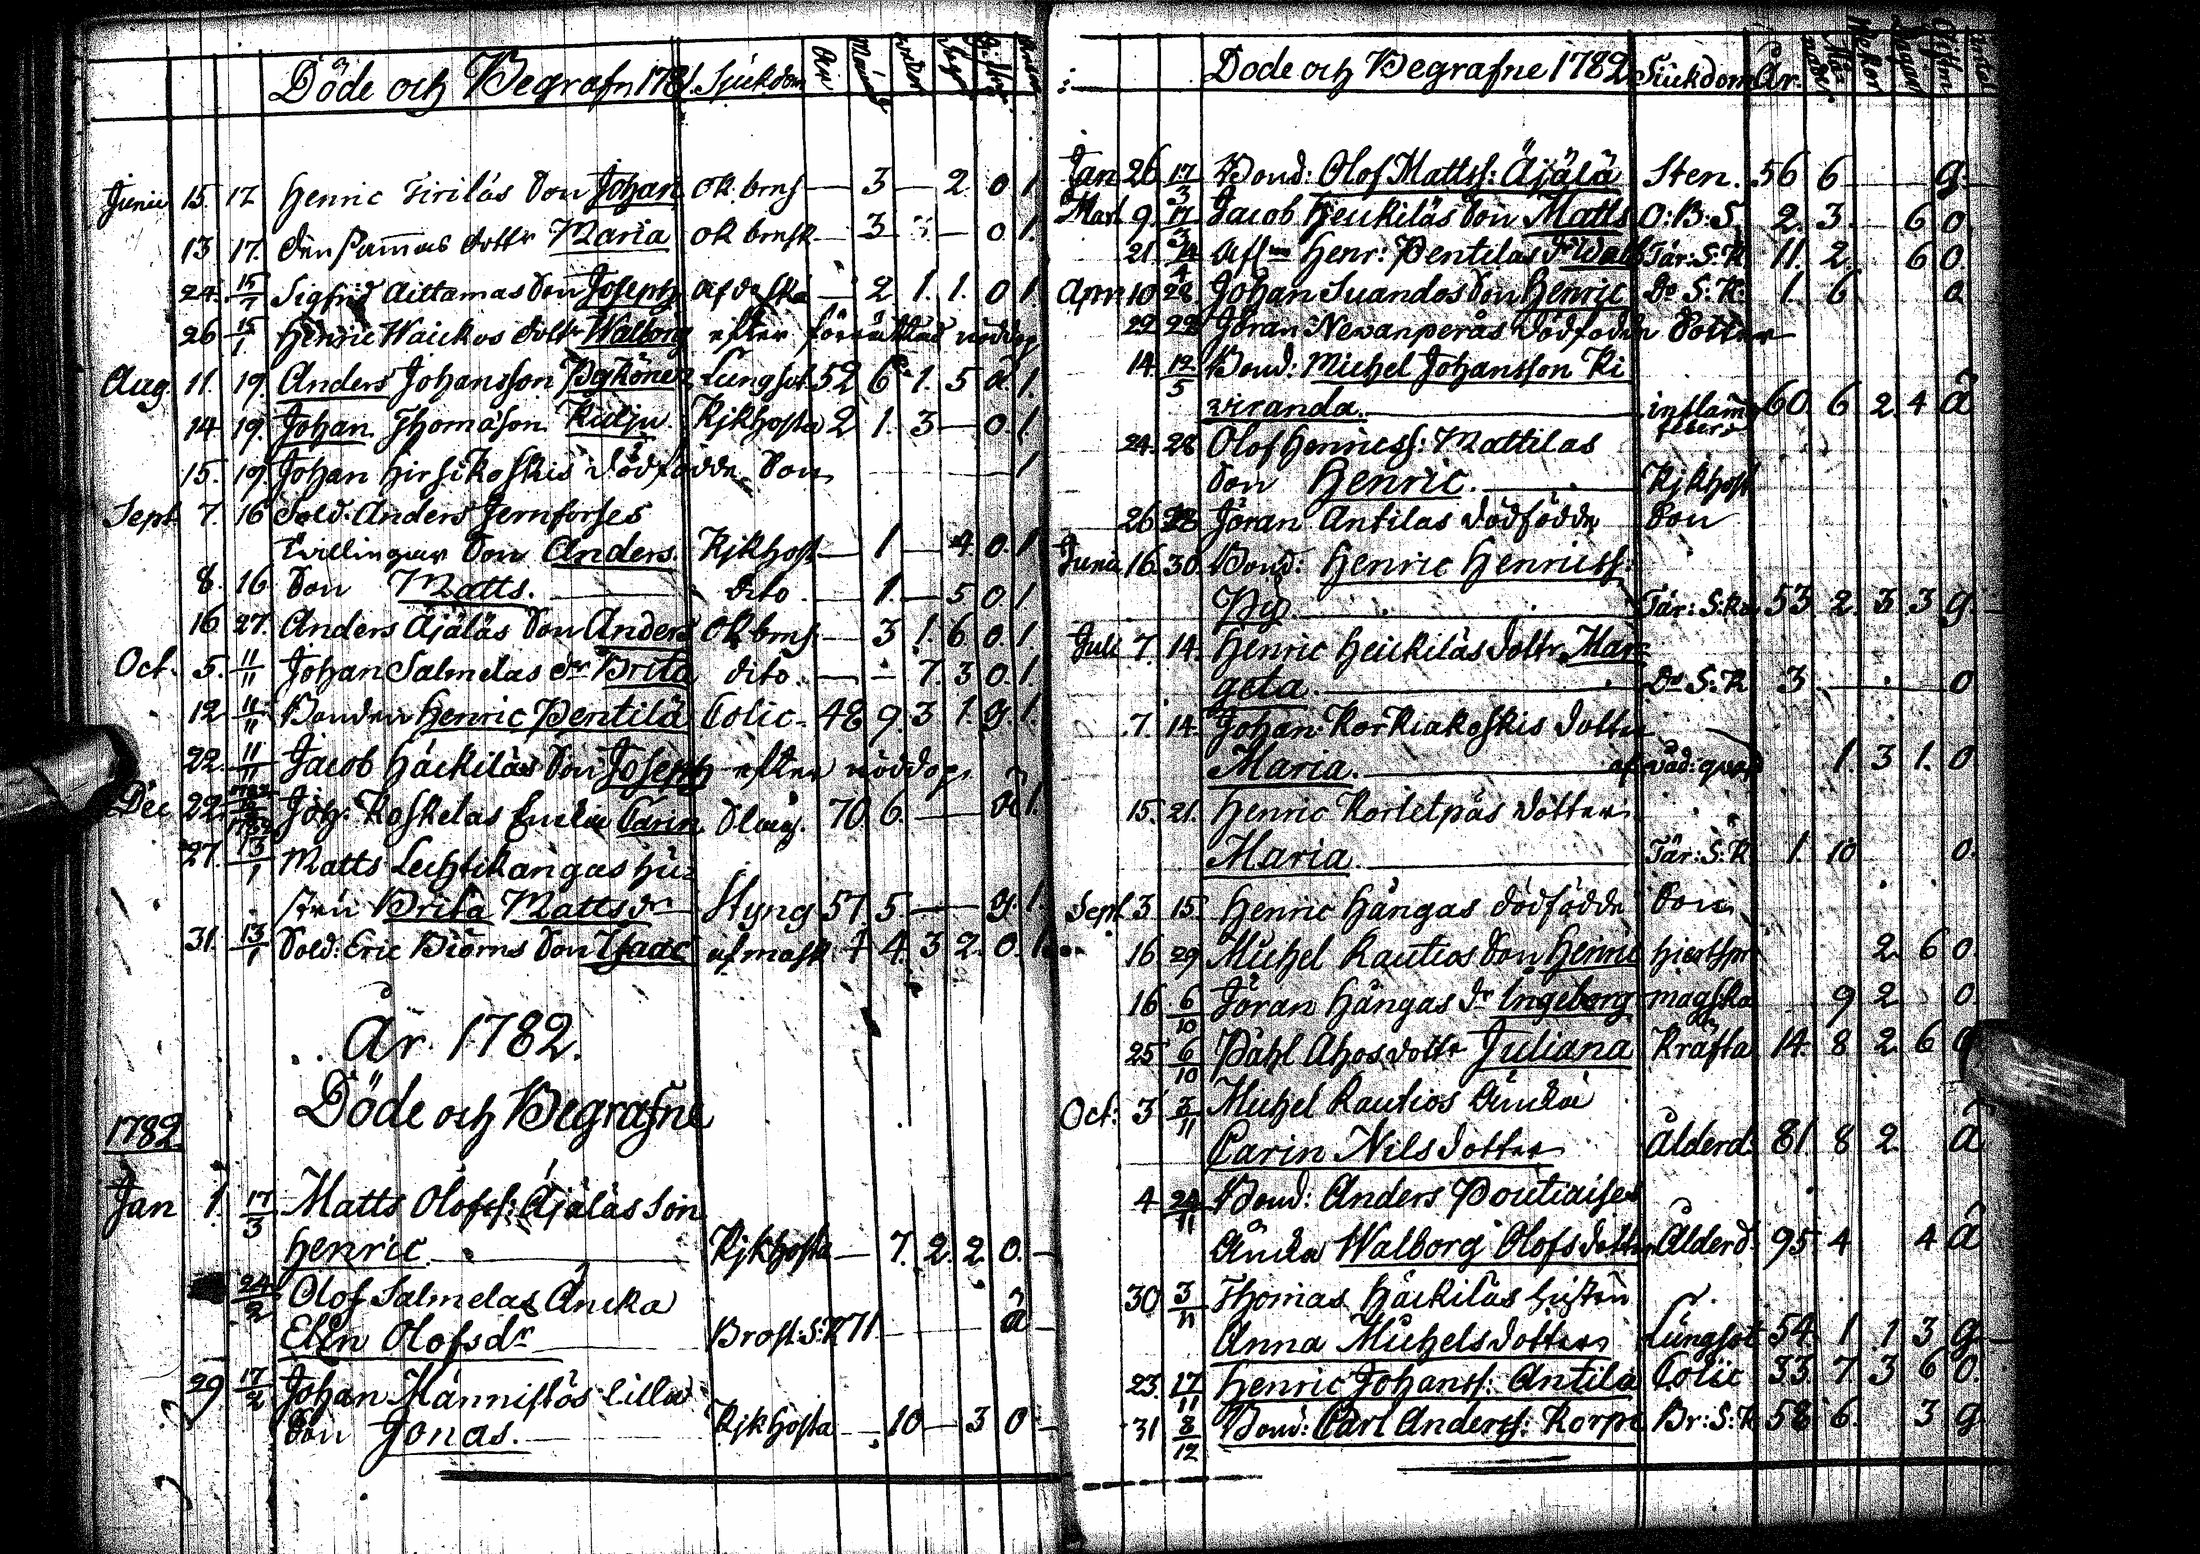 Döde och Begrafn 1781. Sjukdom
Junii 15. 17 Henric Tirilas Son Johan ok. brus — 3 — 2. 0 1
13 17. den sammas dottr Maria ok brusk — 3 — 0 1.
24. 15/7 Sigfrid Aittamas Son Joseph af — 2 1. 1. 0 1
26 15/1 Henric Waickos dottr Walborg efter förrättad nöddop
Aug. 11. 19. Anders Johansson Pejkönen Lungsot. 52 6 1. 5 å. 1.
14 19. Johan Thomasson Kudju Kjkhosta 2 1. 3 — 0. 1.
15. 19. Johan Hirsikoskis dödfödde Son 1
Sept 7. 16 Sold. Anders Jernforses
tvillingar Son Anders. Kjkhost — 1 — 4. 0. 1
8. 16 Son Matts. dito — 1. — 5 0. 1
16. 27. Anders Äjäläs Son Anders ok brus — 3 1. 6 0. 1.
Oct. 5. 11/11 Johan Salmelas dr Brita dito. — — 7. 3 0. 1.
12 11/11 Bonden Henric Pentilä Colic. 48 9. 3 1. g. 1.
22. 11/11 Jacob Häckiläs Son Joseph efter nöddop.
Dec 22. Joh. Koskelas Enckia Carin Slag. 70. 6. — å 1.
27. 13/1 Matts Lechtikangas hu=
stru Brita Mattsdr Styng 57. 5 — g. 1.
31. 13/1 Sold: Eric Biörns Son Isaac af mask. 4 4. 3 2. 0. 1.
År 1782.
Döde och Begrafne
1782.
Jan 1. 17/3 Matts Olofs: Äjäläs Son
Henric. Kjkhosta — 7. 2. 2. 0. —
24/2 Olof Salmelas Äncka
Elin Olofsdr Brost. S:K 71. — å —
29 17/2 Johan Männistös lilla
Son Jonas. Kjkhosta — 10 — 3 0 —
Döde och Begrafne 1782 Siukdom År.
Jan 26 17/3 Bond: Olof Matts: Äjälä Sten. 56 6 g.
Mart 9. 17/3 Jacob Heickiläs Son Matts O:B:S. 2. 3. 6 0.
21. 14/4 Henr: Pentilas Tär: S:K. 11. 2. 6 0.
Apr. 10 28. Johan Suandos Son Henric Do S:K. 1. 6 0
22 28 Jöran Nevanperäs dödfödde Dotter
14. 12/5 Bond: Michel Johansson Ki
viranda. inflam feber 60. 6 2. 4 å
24. 28 Olof Henricss: Mattilas
Son Henric. Kjkhost
26 28 Jöran Antilas dödfödde Son
Junii 16. 30. Bond: Henric Henricss:
Pyy Tär: S:ka 53. 2. 3 3 g.
Juli 7. 14. Henric Heickiläs dottr Mar=
geta. Do S:K 3 0
7. 14. Johan Korkiakoskis dotter
Maria. 1. 3 1. 0
15. 21. Henric Kortetpäs dotter
Maria Tär: S:K 1. 10 0.
Sept 3. 15. Henric Hångas dödfödde Son
16 29 Michel Rautios Son Henric 2. 6 0.
16 6/10 Jöran Hångas dr Ingeborg magska 9 2 0.
25 6/10 Påhl Ahos dottr Juliana Kräfta 14. 8 2 6 0
Oct: 3 3/11 Michel Rautios Äncka
Carin Nilsdotter Ålderd. 81. 8 2 å
4 24/11 Bond: Anders Poutiaises
Äncka Walborg Olofsdotter Ålderd. 95. 4 4 å
30 3/11 Thomas Häckiläs hustru
Anna Michelsdotter Lungsot 54. 1 1 3 g
23. 17/11 Henric Johanss: Antila Colic 33. 7. 3 6 0.
31 8/12 Bond: Carl Anderss: Korpi Br: S:K 58 6. 3 g